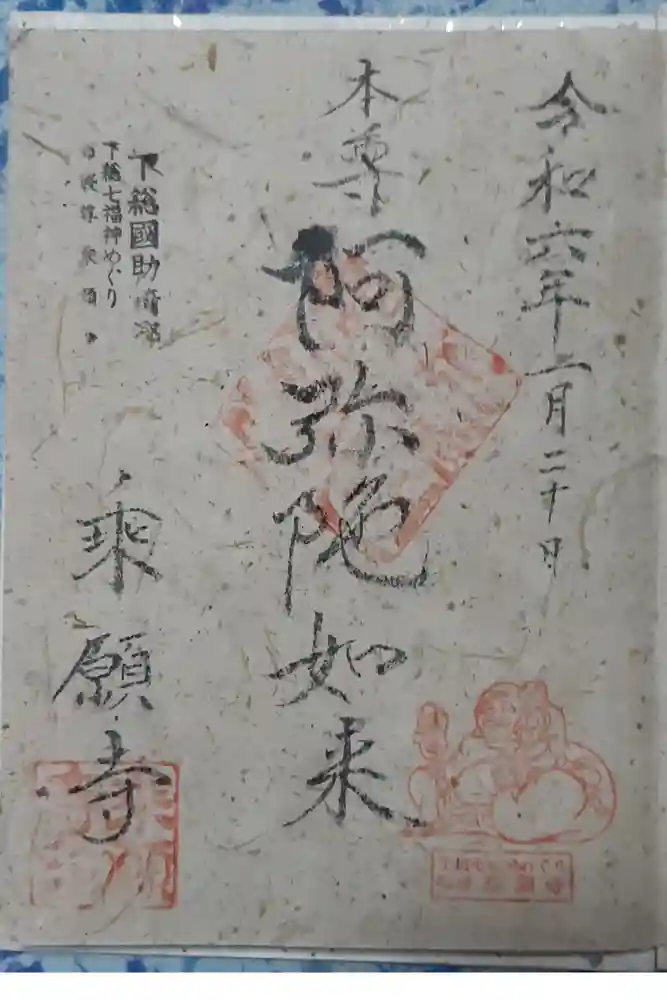 令和六年二月二十日
本尊
阿弥陀如来
下総國助崎
下總七福神めぐり
乗願寺